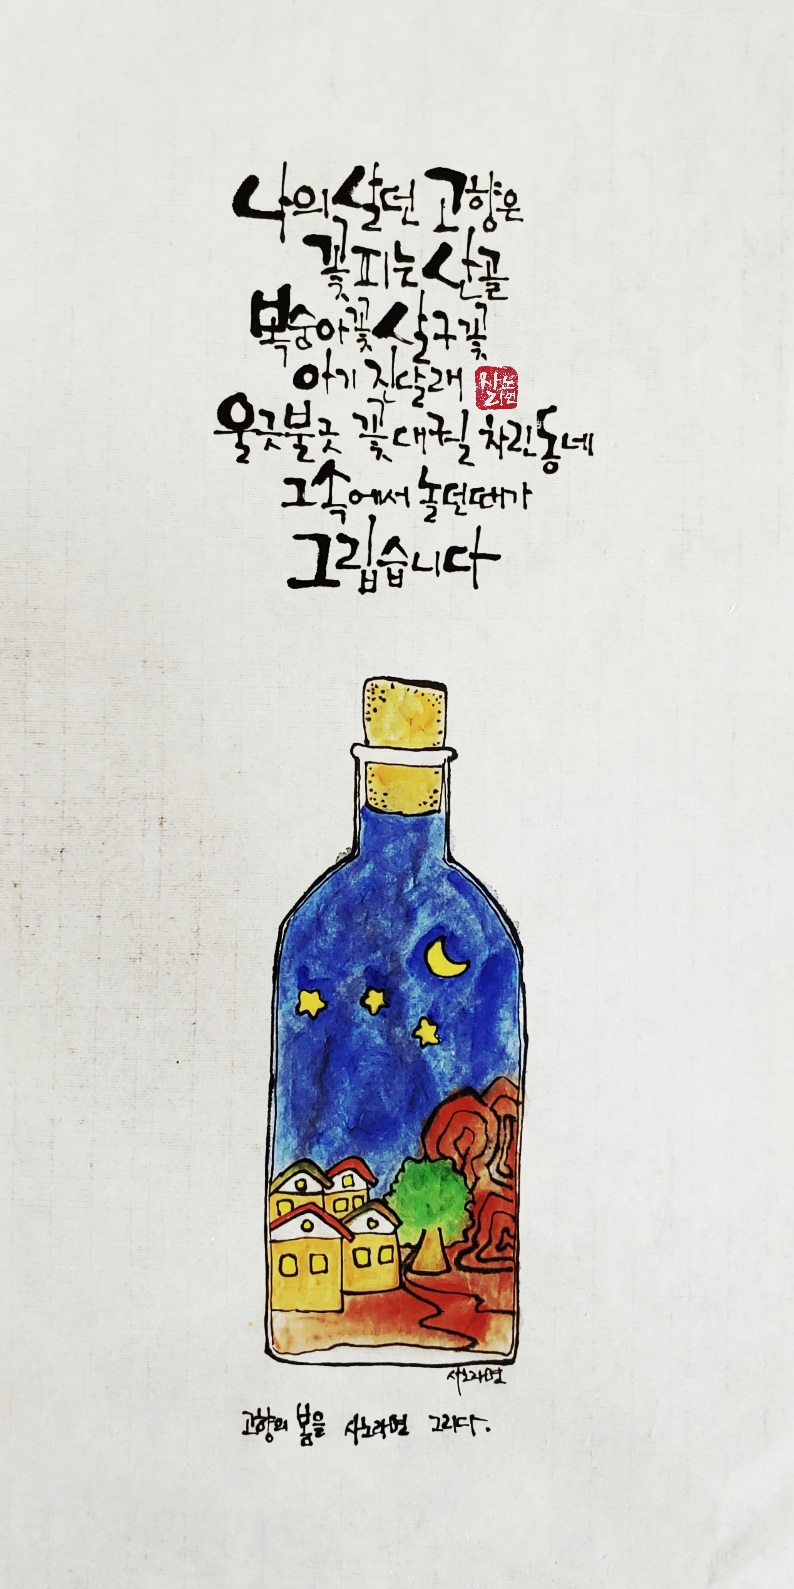 나의 살던 고향은
꽃피는 산골
복숭아꽃 살구꽃
아기 진달래
울긋불긋 꽃대궐 차린동네
그속에서 놀던때가
그립습니다
샤노라면
샤노라면
고향의 봄을 샤노라면 그리다.